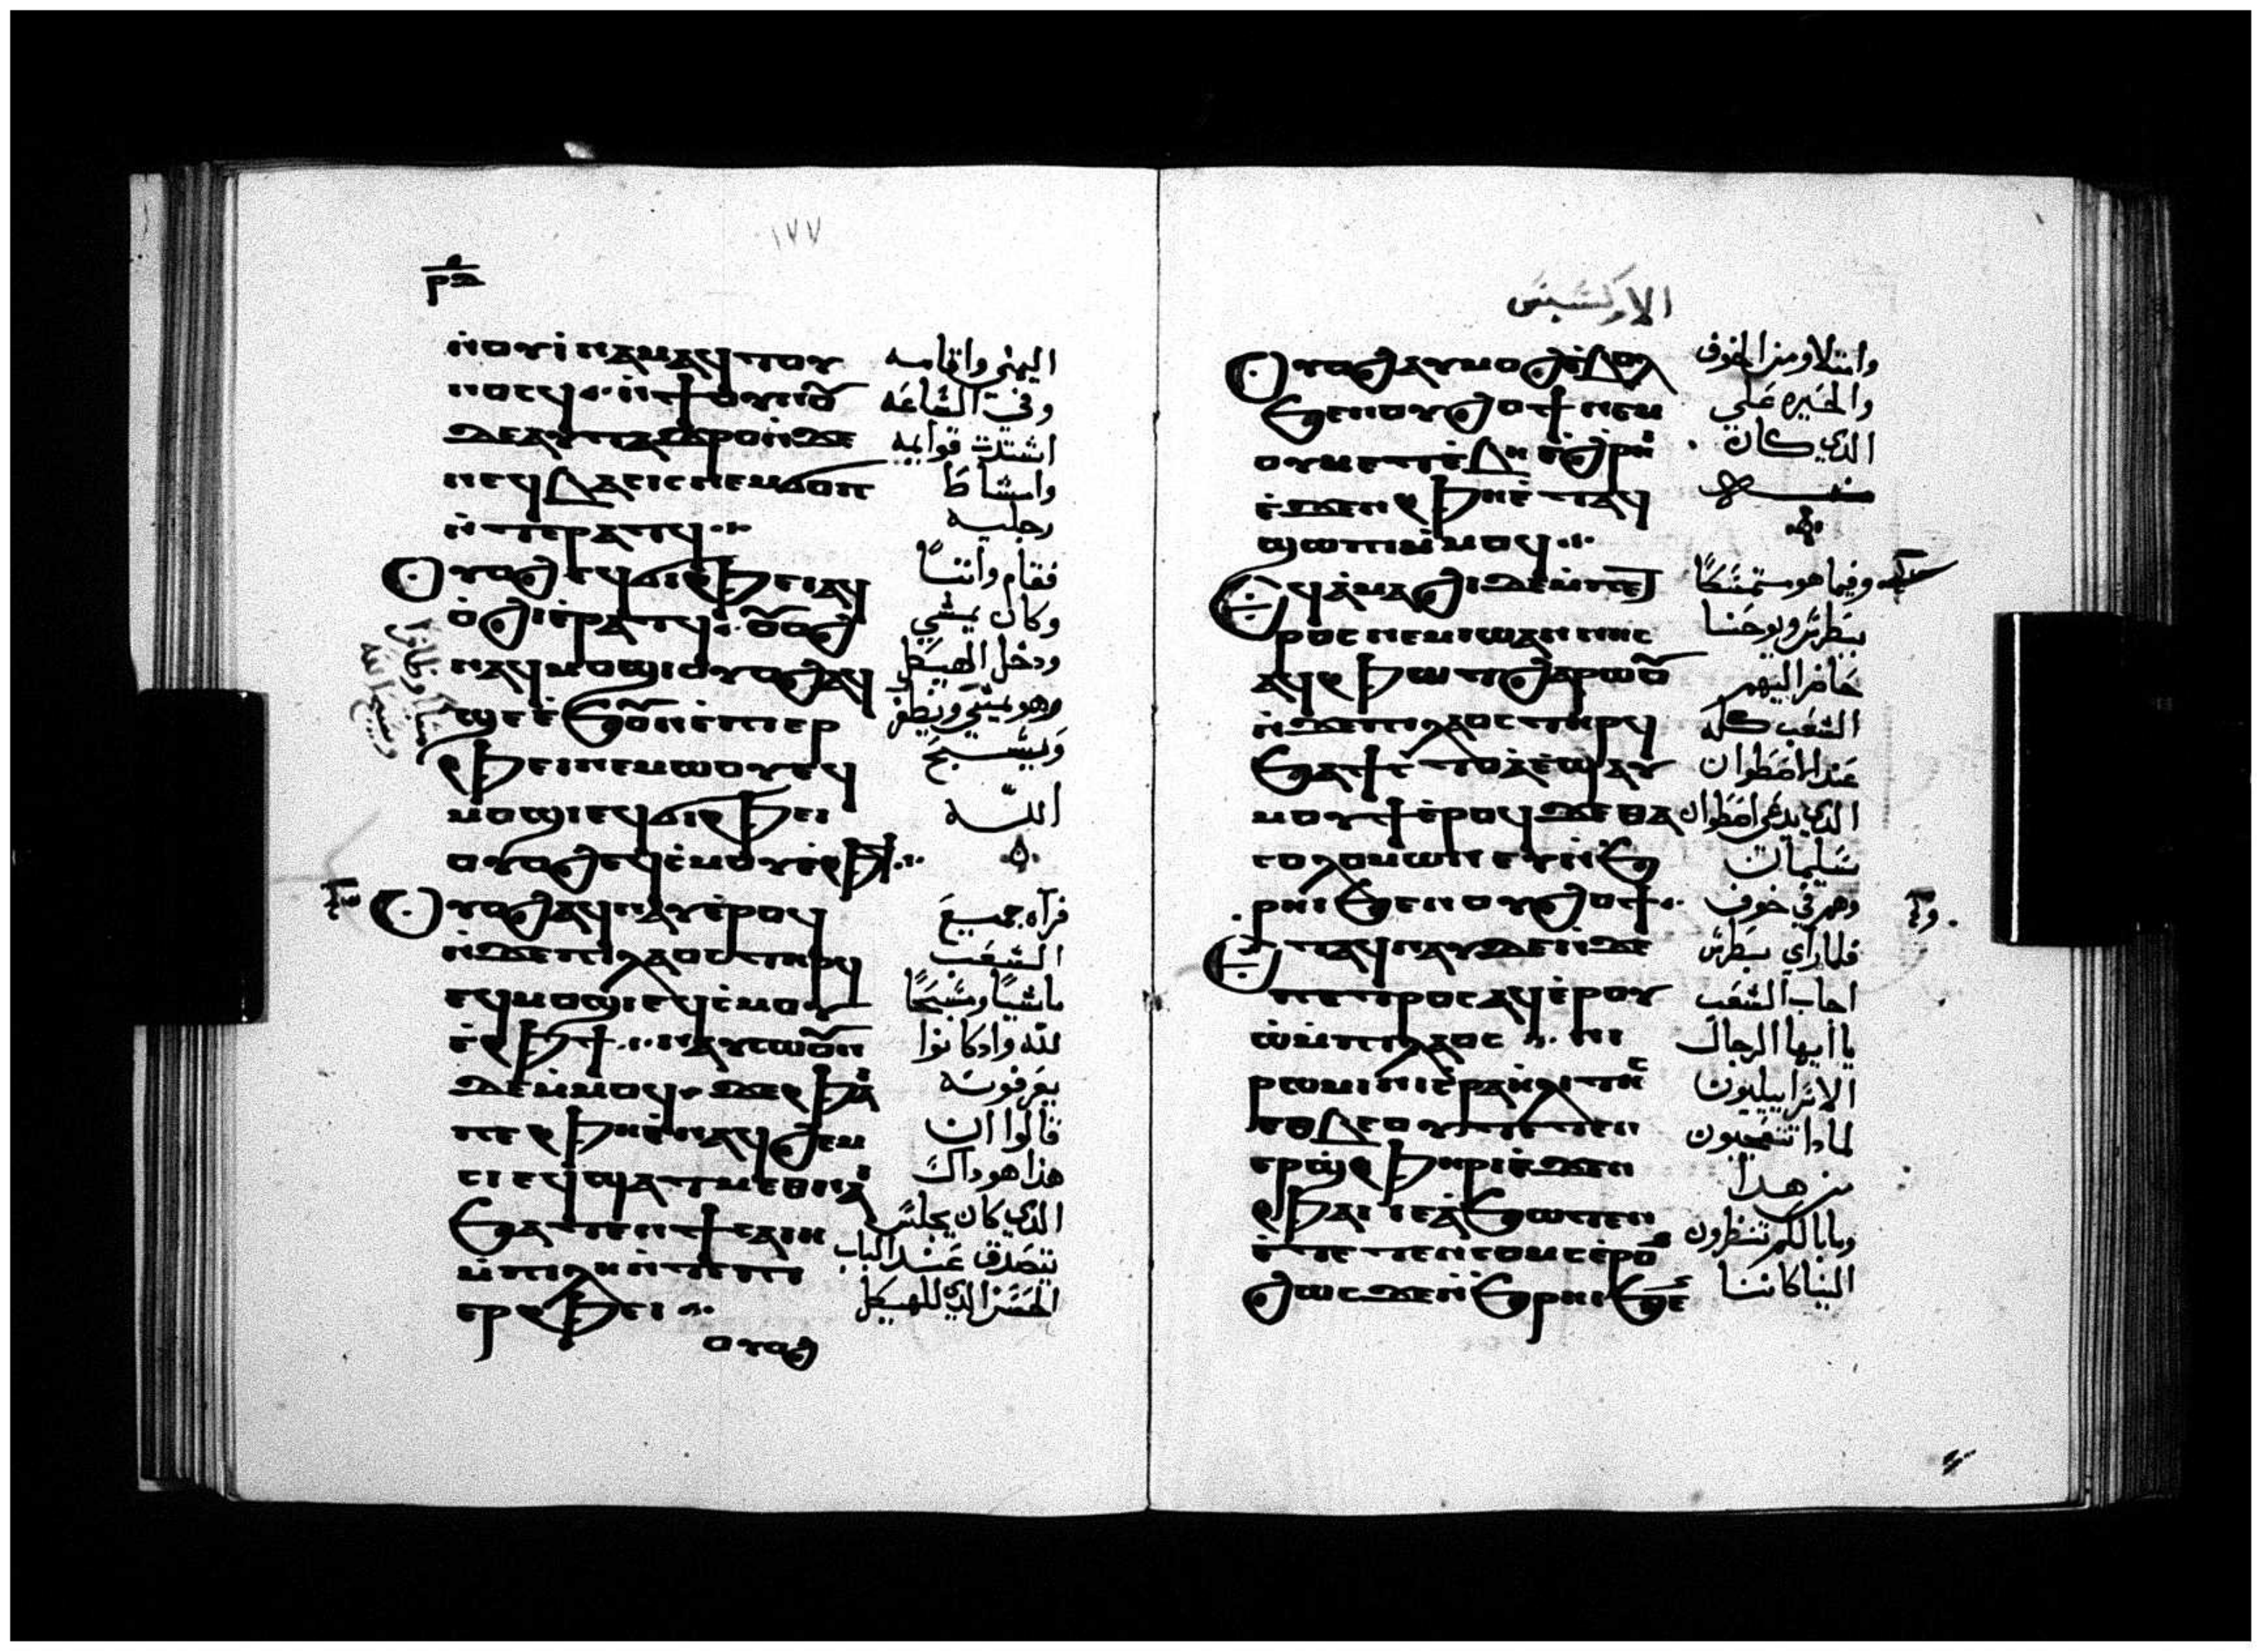 ١٧٧
ⲣⲃ
ⲛⲟⲩⲓⲛⲁⲙ ⲁϥⲧⲟⲩ
ⲛⲟⲥϥ ⁘ ⲛ̇ϯⲟⲩⲛⲟⲩ
ⲇⲉ ⲁⲩⲧⲁϫⲣⲟ ⲛ̇ϫⲉ
ⲛⲉϥⲃⲁⲥⲓⲥ ⲛⲉⲙ ϭⲟⲡ
ⲛ̇ⲧⲉⲣⲁⲧϥ ⁘
ⲟⲩⲟϩ ⲉϥϭⲓⲫⲉⲓ ⲁϥ
ⲟ̇ϩⲓ ⲉ̇ⲣⲁⲧϥ ⁘ ⲟⲩⲟϩ
ⲛⲁϥⲙⲟϣⲓ ⲟⲩⲟϩ ⲁϥ
ϣⲉ ⲉ̇ϧⲟⲩⲛ ⲉ̇ⲡⲓⲉⲣ
ⲫⲉⲓ ⲛⲉⲙⲱⲟⲩ ⲉϥ
ⲙⲟϣⲓ ⲉϥϭⲓⲫⲉⲓ
ⲟⲩⲟϩ ⲉϥⲥ̇ⲙⲟⲩ ⲉ̇ⲫϯ ⁘
ⲟⲩⲟϩ ⲁϥⲛⲁⲩ ⲉ̇ⲣⲟϥ
ⲛ̇ϫⲉ ⲡⲓⲗⲁⲟⲥ ⲧⲏⲣϥ
ⲉϥⲙⲟϣⲓ ⲉϥⲥ̇ⲙⲟⲩ
ⲉ̇ⲫϯ ⁘ ⲛⲁⲩⲥⲱⲟⲩⲛ
ⲇⲉ ⲙ̇ⲙⲟϥ ϫⲉ ⲫⲁⲓ
ⲡⲉ ⲫⲏ ⲉ̇ⲛⲁϥϩⲉⲙ
ⲥⲓ ⲉϥϣⲁⲧⲙⲉⲑⲛⲁⲓ
ϧⲁⲧⲉⲛ ϯⲥⲁⲓⲏ
ⲙ̇ⲡⲩⲗⲏ ⲛ̇ⲧⲉ ⲡⲓ
ⲉⲣⲫⲉⲓ ⁘
ⲟⲩⲟϩ
اليمنى واقامه
وفى الساعه
اشتدت قوايمه
رجليه
فقام واثبا
وكان يمشي
ودخل الهيكل
وهو يمشي
ويسبح
الله
فرآه جميع
الشعب
ماشيا ومسبحا
لله واذ كانوا
يعرفونه
قالوا ان
هذا هو ذاك
الذي كان يجلس
يتصدق عند الباب
الحسن الذي للهيكل
الابركسيس
ⲟⲩⲟϩ ⲁⲩⲙⲟϩ ⲉ̇ⲃⲟⲗ
ϧⲉⲛ ⲟⲩϩⲟϯ ⲛⲉⲙ
ⲟⲩⲙⲉⲧⲉ̇ⲃⲏ ⲉ̇ϩ̇ⲣⲏⲓ
ⲉ̇ϫⲉⲛ ⲫⲏ ⲉ̇ⲧⲁϥ
ϣⲱⲡⲓ ⲙ̇ⲙⲟϥ ⁘
ⲉϥⲁ̇ⲙⲁϩⲓ ⲇⲉ ⲙ̇ⲡⲉⲧ
ⲣⲟⲥ ⲛⲉⲙ ⲓⲱⲁⲛⲛⲏⲥ
ⲁϥⲫⲱⲧ ϩⲁⲣⲱⲟⲩ
ⲛ̇ϫⲉ ⲡⲓⲗⲁⲟⲥ ⲧⲏⲣϥ
ϧⲁ ϯⲥⲧⲟⲁ̇ ⲉ̇ϣⲁⲩ
ⲙⲟⲩϯ ⲉ̇ⲣⲟϥ ϫⲉ ⲑⲁ
ⲥⲟⲗⲟⲙⲱⲛ ⲉⲩⲛ̇ϧ
ⲣⲏⲓ ϧⲉⲛ ⲟⲩϩⲟϯ ⁘
ⲉ̇ⲧⲁϥⲛⲁⲩ ⲇⲉ ⲛ̇ϫⲉ
ⲡⲉⲧⲣⲟⲥ ⲁϥⲉ̇ⲣⲟⲩ
ⲱ̇ ⲙ̇ⲡⲓⲗⲁⲟⲥ ⁘ ⲛⲓ
ⲣⲱⲙⲓ ⲛⲓⲥ̇ⲣⲁⲏ̇ⲗⲓⲧⲏⲥ
ⲉⲑⲃⲉⲟⲩ ⲧⲉⲧⲉⲛ
ⲉⲣϣ̇ⲫⲏⲣⲓ ⲉ̇ϫⲉⲛ
ⲫⲁⲓ ⲓⲉ ⲁ̇ϧⲱⲧⲉⲛ
ⲉ̇ⲧⲉⲧⲉⲛⲥⲟⲙⲥ ⲉ̇ⲣⲟⲛ
ϩⲱⲥ ϫⲉ ⲛ̇ϧⲣⲏⲓ ϧⲉⲛ
وامتلاو من الخوف
والحيره على
الذي كان
منه
وفيما هو متمسكا
ببطرس ويوحنا
حاضر اليهم
الشعب كله
عند الاصطوان
الذي يدعى اصطوان
سليمان
وهم في خوف
فلما راي بطرس
اجاب الشعب
يا ايها الرجال
الاسراييليون
لماذا تتعجبون
من هذا
وما بالكم تنظرون
الينا كاننا